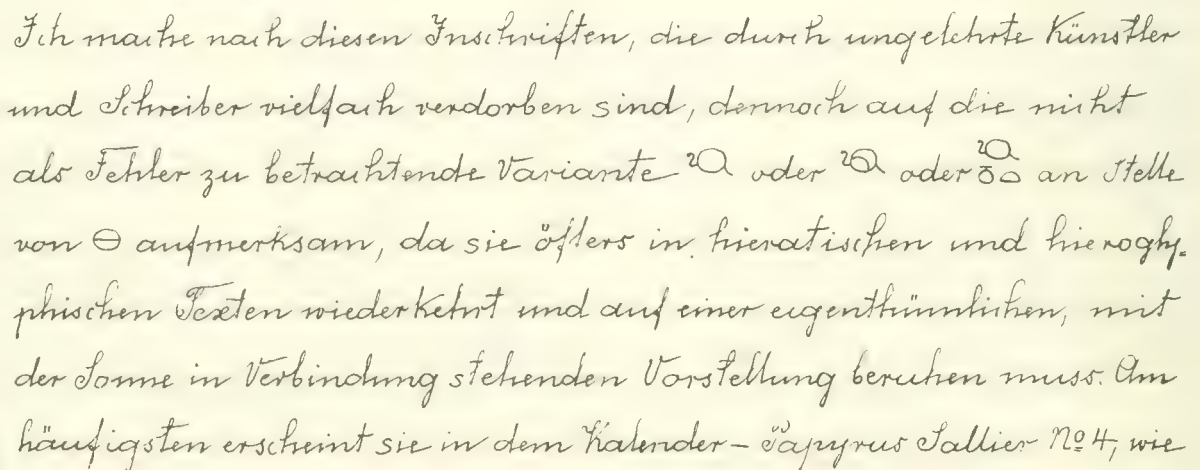 Ich mache nach diesen Inschriften, die durch ungelehrte Künstler
und Schreiber vielfach verdorben sind, dennoch auf die nicht
als Fehler zu betrachtende Variante oder oder an Stelle
von aufmerksam, da sie öfters in hieratischen und hierogly-
phischen Texten wiederkehrt und auf einer eigenthümlichen, mit
der Sonne in Verbindung stehenden Vorstellung beruhen muss. Am
häufigsten erscheint sie in dem Kalender-Papyrus Sallier No 4, wie